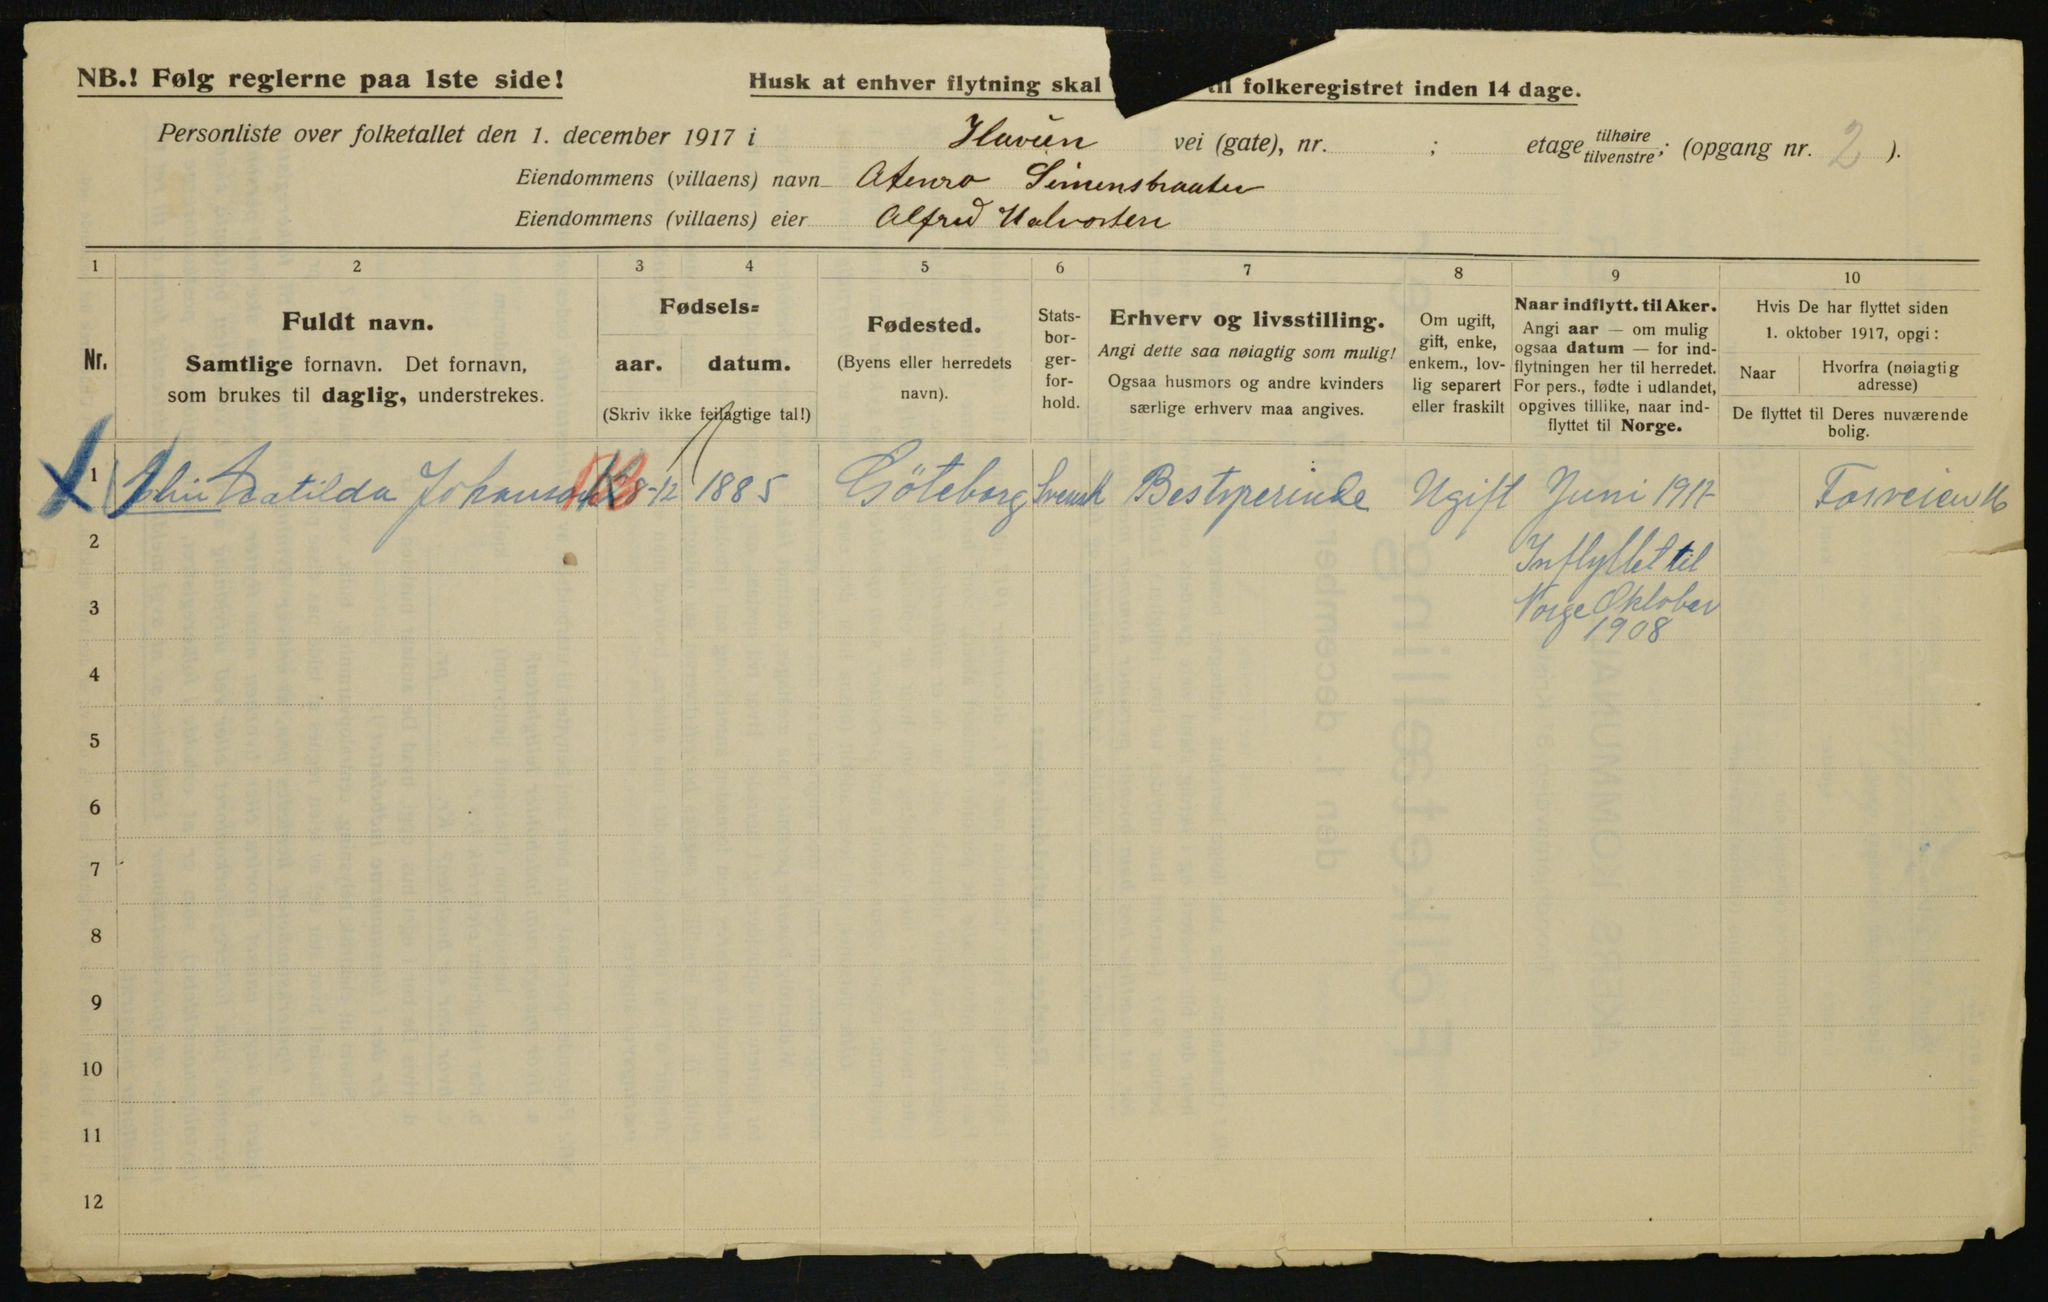 NB.! Følg reglerne paa 1ste side!
Husk at enhver flytning skal til folkeregistret inden 14 dage.
Personliste over folketallet den 1. december 1917 i vei (gate), nr. ; etage tilhøire tilvenstre; (opgang nr. 2 ).
Eiendommens (villaens) navn
Eiendommens (villaens) eier Alfred Halvorsen
1 2 3 4 5 6 7 8 9 10
Nr.
Fuldt navn.
Samtlige fornavn. Det fornavn,
som brukes til daglig, understrekes.
Fødsels=
aar. datum.
(Skriv ikke feilagtige tal!)
Fødested.
(Byens eller herredets
navn).
Stats-
bor-
ger-
for-
hold.
Erhverv og livsstilling.
Angi dette saa nøiagtig som mulig!
Ogsaa husmors og andre kvinders
særlige erhverv maa angives.
Om ugift,
gift, enke,
enkem., lov-
lig separert
eller fraskilt
Naar indflytt. til Aker.
Angi aar — om mulig
ogsaa datum — for ind-
flytningen her til herredet.
For pers., fødte i udlandet,
opgives tillike, naar ind-
flyttet til Norge.
Hvis De har flyttet siden
1. oktober 1917, opgi:
Naar
Hvorfra (nøiagtig
adresse)
De flyttet til Deres nuværende
bolig.
1 Matilda Johanson 8-12 1885 Göteborg Svensk Bestyrerinde Ugift Juni 1917 Fosveien 16
2 Inflyttet til
3 Norge Oktober
1908
4
5
6
7
8
9
10
11
12